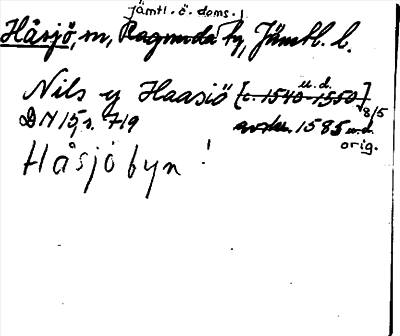 Jämtl. ö. doms.
Håsjö, sn, Ragunda tg, Jämtl. l.
Nils y Haasiö [c. 1540-1550] u.d.
DN 15, s. 719 1585 u.d. 8/5
orig.
Håsjöbyn!